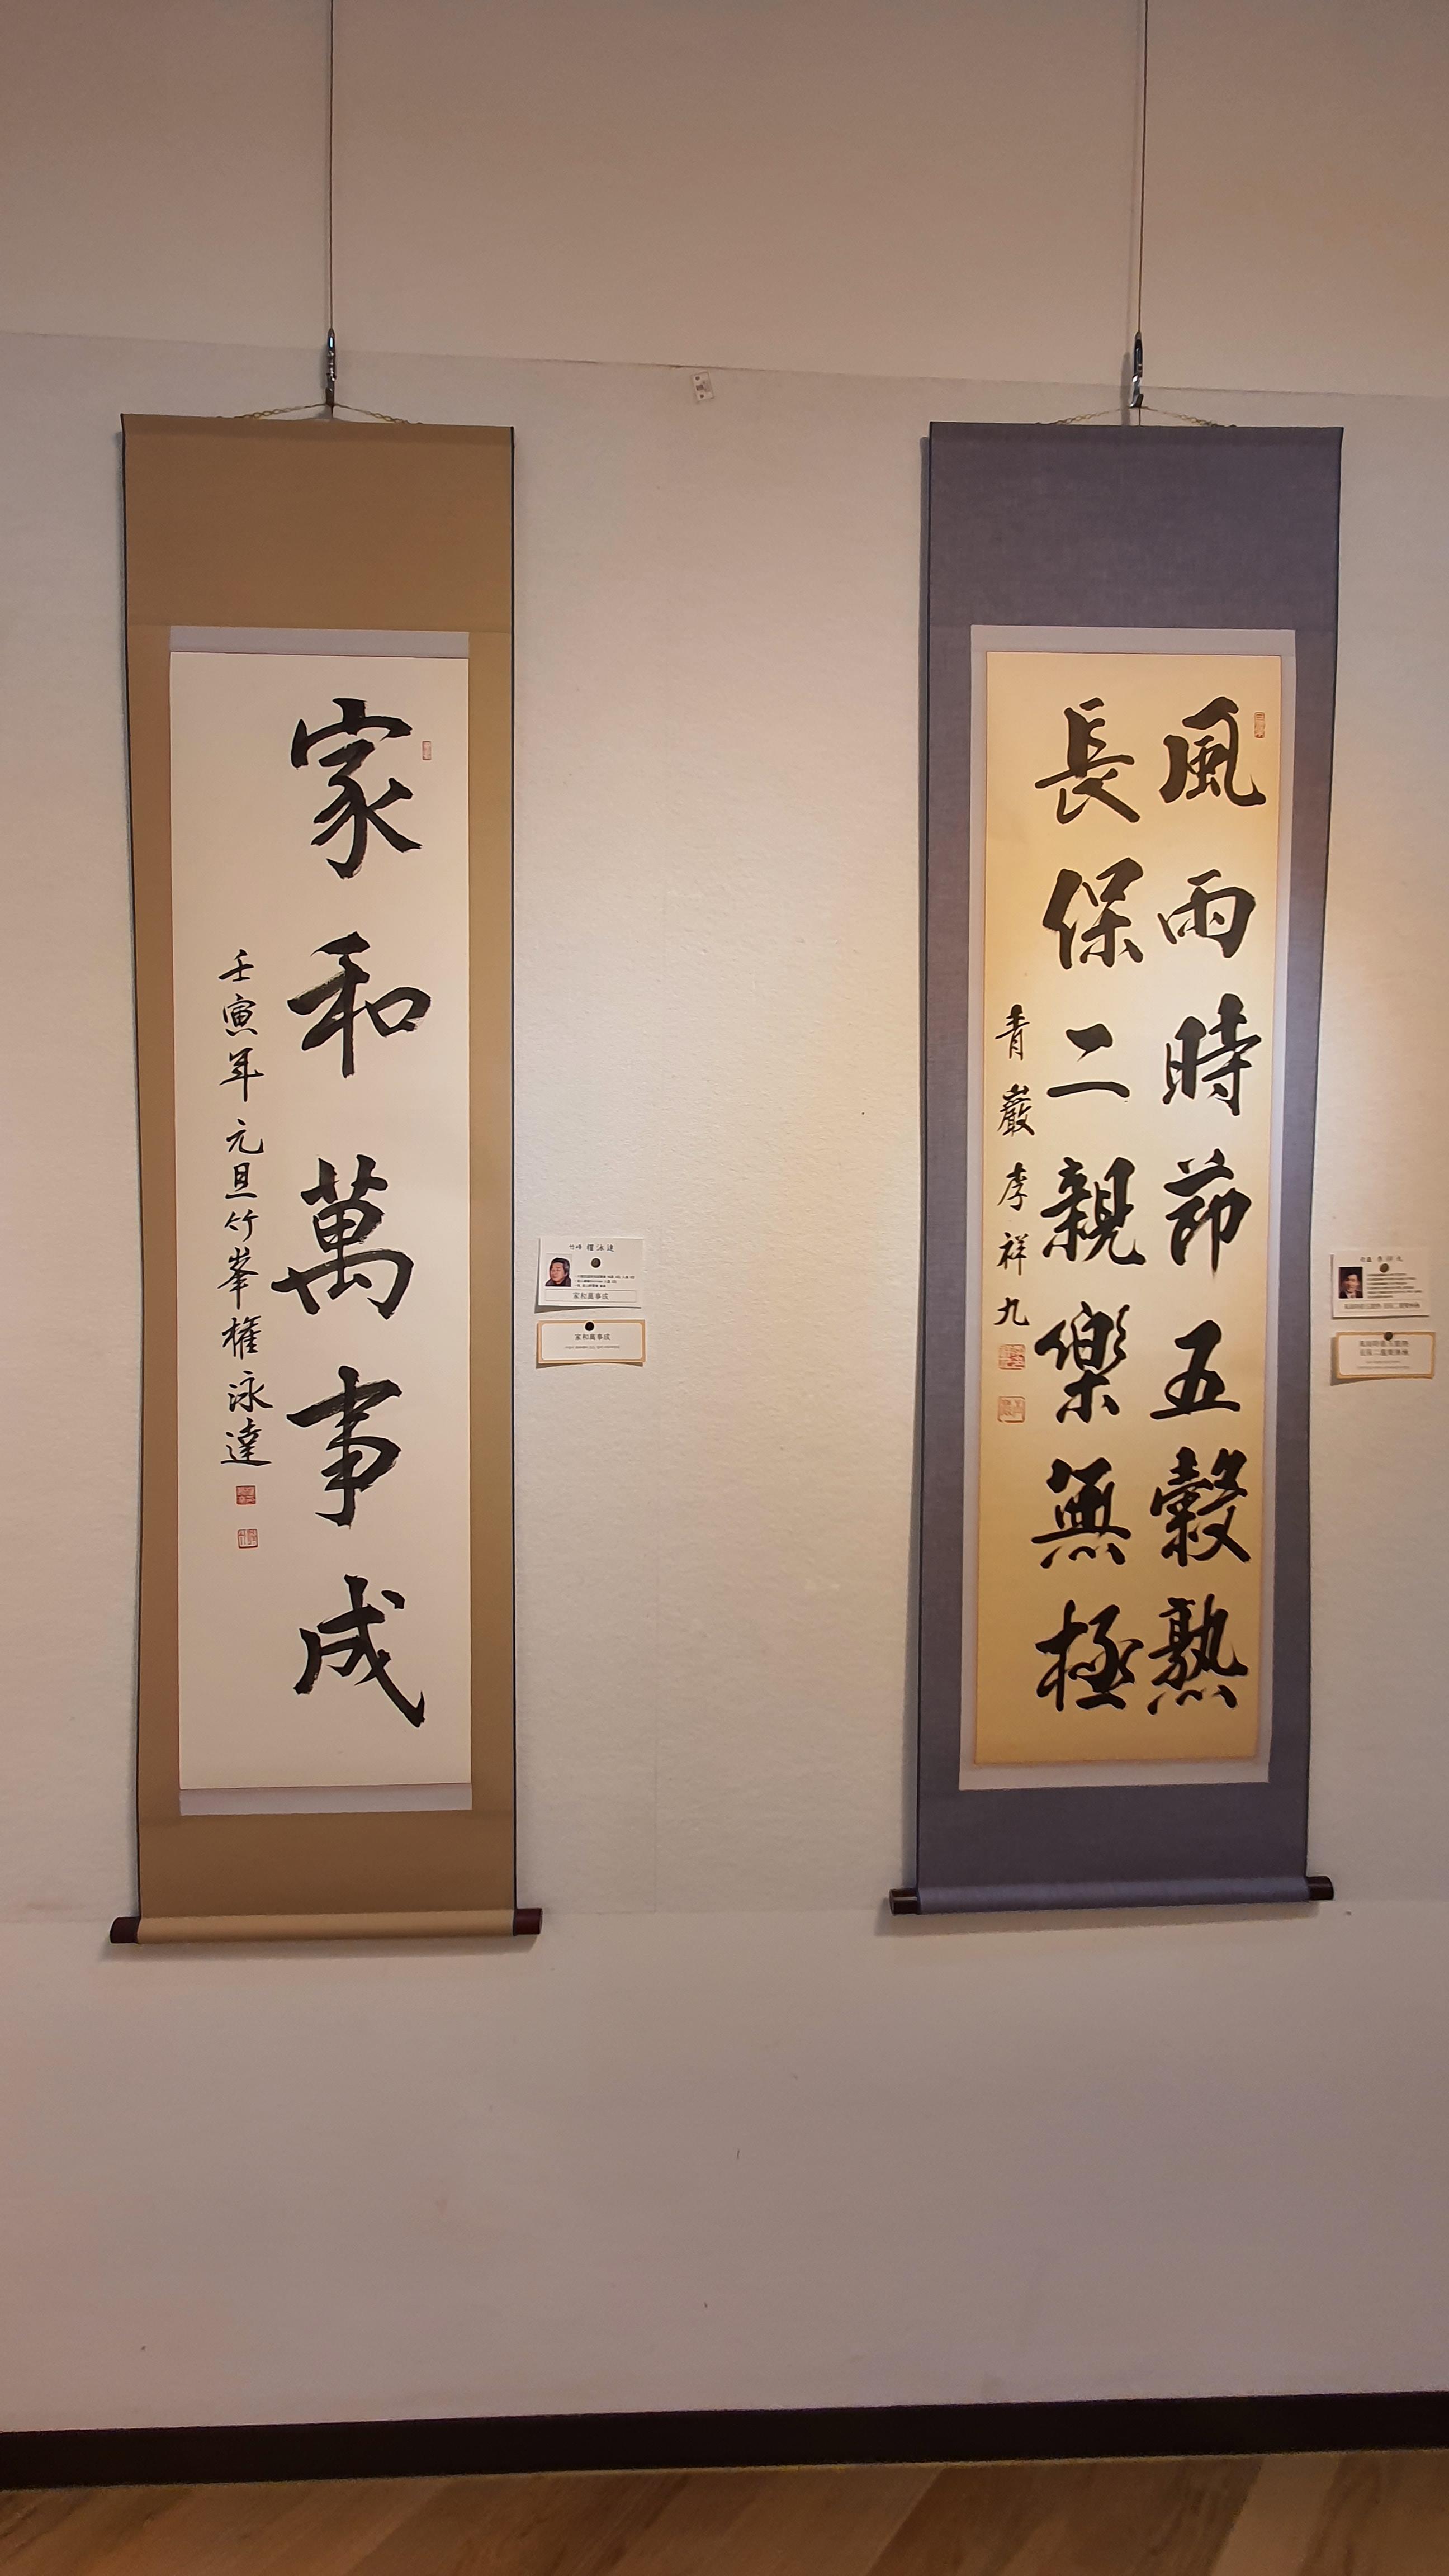 風雨時節五穀熟
長保二親樂無極
青巖 李祥九
家和萬事成
壬寅年 元旦 竹峯 權泳達
竹峰 權泳達
家和萬事成
家和萬事成